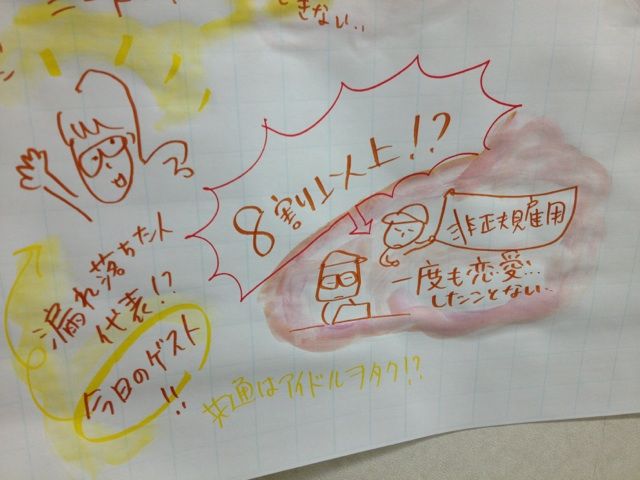 きない..
8割以上!?
非正規雇用
一度も恋愛...
したことない..
漏れ落ちた人
代表!?
今日のゲスト
!!
共通はアイドルヲタク!?